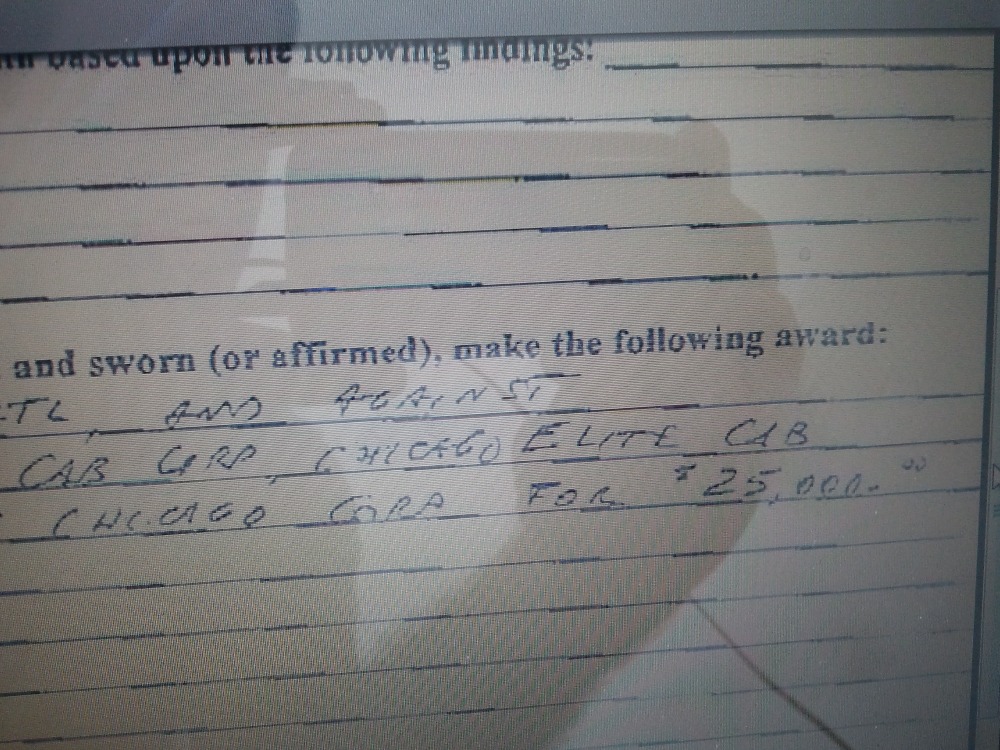 based upon the following findings:
and sworn (or affirmed), make the following award:
TL, AND AGAINST
CAB CORP, CHICAGO ELITE CAB
CHICAGO CORP FOR $25,000.00